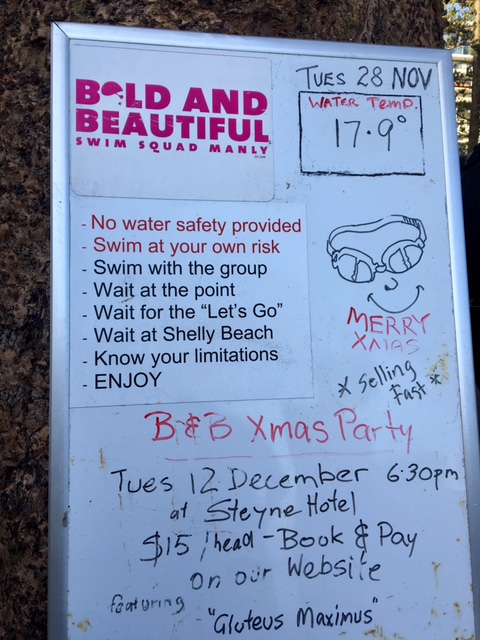 BOLD AND
BEAUTIFUL
SWIM SQUAD MANLY
TUES 28 NOV
WATER TEMP.
17.9°
- No water safety provided
- Swim at your own risk
- Swim with the group
- Wait at the point
- Wait for the “Let's Go”
- Wait at Shelly Beach
- Know your limitations
- ENJOY
MERRY
XMAS
* Selling
Fast *
B & B Xmas Party
Tues 12 December 6.30pm
at Steyne Hotel
$15 /head - Book & Pay
on our Website
featuring
- "Gluteus Maximus"